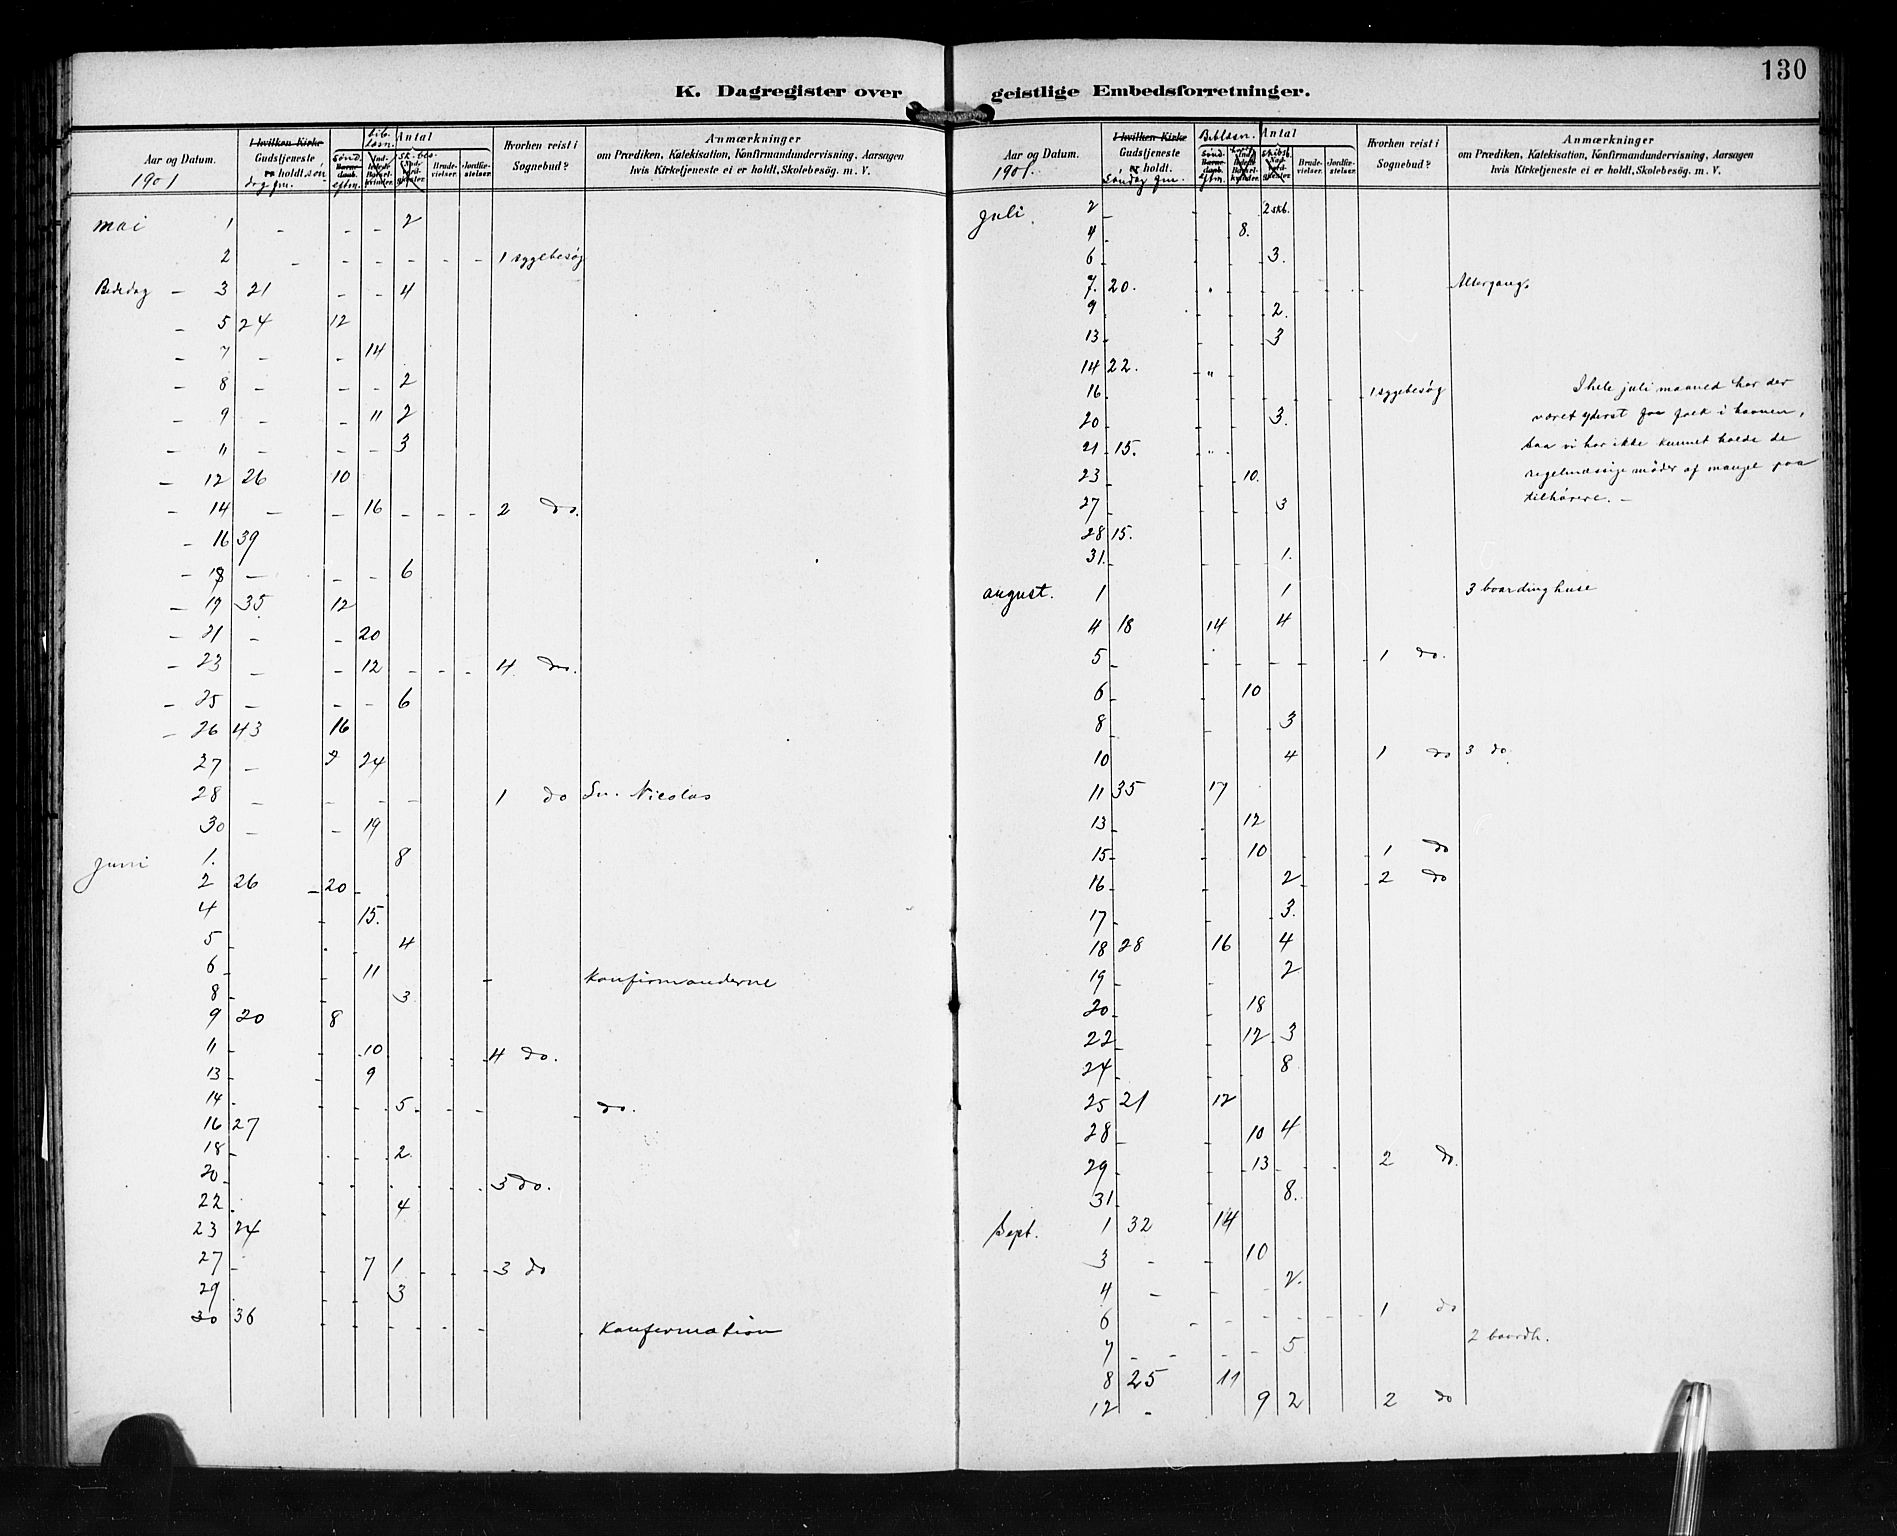 130
K. Dagregister over geistlige Embedsforretninger.
Aar og Datum. 1901
I hvilken Kirke Gudstjeneste er holdt. søndag fm.
Antal
bib. læsn. sk. bes.
sønd. eftm.
Brudevielser.
Jordfæstelser.
Hvorhen reist i Sognebud?
Anmærkninger
om Prædiken, Katekisation, Konfirmandundervisning, Aarsagen
hvis Kirketjeneste ei er holdt, Skolebesøg. m. V.
Mai 1 - - - 2
2 - - - - - - 1 sygebesøg
Bededag - 3 21 - - 4
- 5 24 12
- 7 - - 14
- 8 - - - 2
- 9 - - 11 2
- 11 - - - 3
- 12 26 10
- 14 - - 16 - - - 2 do.
- 16 39
- 18 - - - 6
- 19 35 12
- 21 - - 20
- 23 - - 12 - - - 4 do.
- 25 - - - 6
- 26 43 16
27 - 2 24
28 - - - - 1 do Sn. Nicolas
30 - - 19
Juni 1. 8
2 26 - 20 -
4 - 15.
5 - - 4
6 - - 11 - Konfirmanderne
8 - - 3
9 20 8
11 - 10 - - - 4 do.
13 - - 9
14 - - - 5 - - - - do.
16 27
18 - - - 2
20 - - - - - - 3 do.
22 - - - 4
23 24
27 - - 7 1 - - - 3 do
29 - - 3
30 36 - - - - - Konfirmation
Aar og Datum. 1901.
I hvilken Kirke Gudstjeneste er holdt. Søndag fm.
Antal
Biblæsn. skibsb.
Sønd. eftm.
Brudevielser.
Jordfæstelser.
Hvorhen reist i Sognebud?
Anmærkninger
om Prædiken, Katekisation, Konfirmandundervisning, Aarsagen
hvis Kirketjeneste ei er holdt, Skolebesøg. m. V.
Juli 2 - - - 2 skb.
4 - - 8.
6 - - - 3.
7. 20. " - - - - - Altergang.
9 - - - 2.
13 - - - 3
14 22. "
16 - - - - - - 1 sygebesøg
I hele juli maaned har der
været yderst faa folk i havnen,
saa vi har ikke kunnet holde de
regelmæssige møder af mangel paa
tilhørere. -
20 - - - 3.
21 15. "
23 - - 10.
27 - - - 3
28 15.
31. - - - 1.
august. 1 1 3 boardinghuse
4 18 14 4
5 - - - - - - 1 do.
6 - - 10
8 - - - 3
10 4 1 do 3 do.
11 35 17
13 - - 12
15 - - 10 - - 1 do
16 - - - 2 - - 2 do
17 - - 3.
18 28 16 4
19 - - 2
20 - - 18
22 - - 12 3
24 - - - 8
25 21 12
28 - - 10 4
29 - - 13 - - - 2 do.
31 - - 8.
Sept. 1 32 14
3 - - 10
4 - - - 2.
6 - - - - - - 1 do
7 - - - - 5 2 boardh.
8 25 11
12 - 9 2 2 do